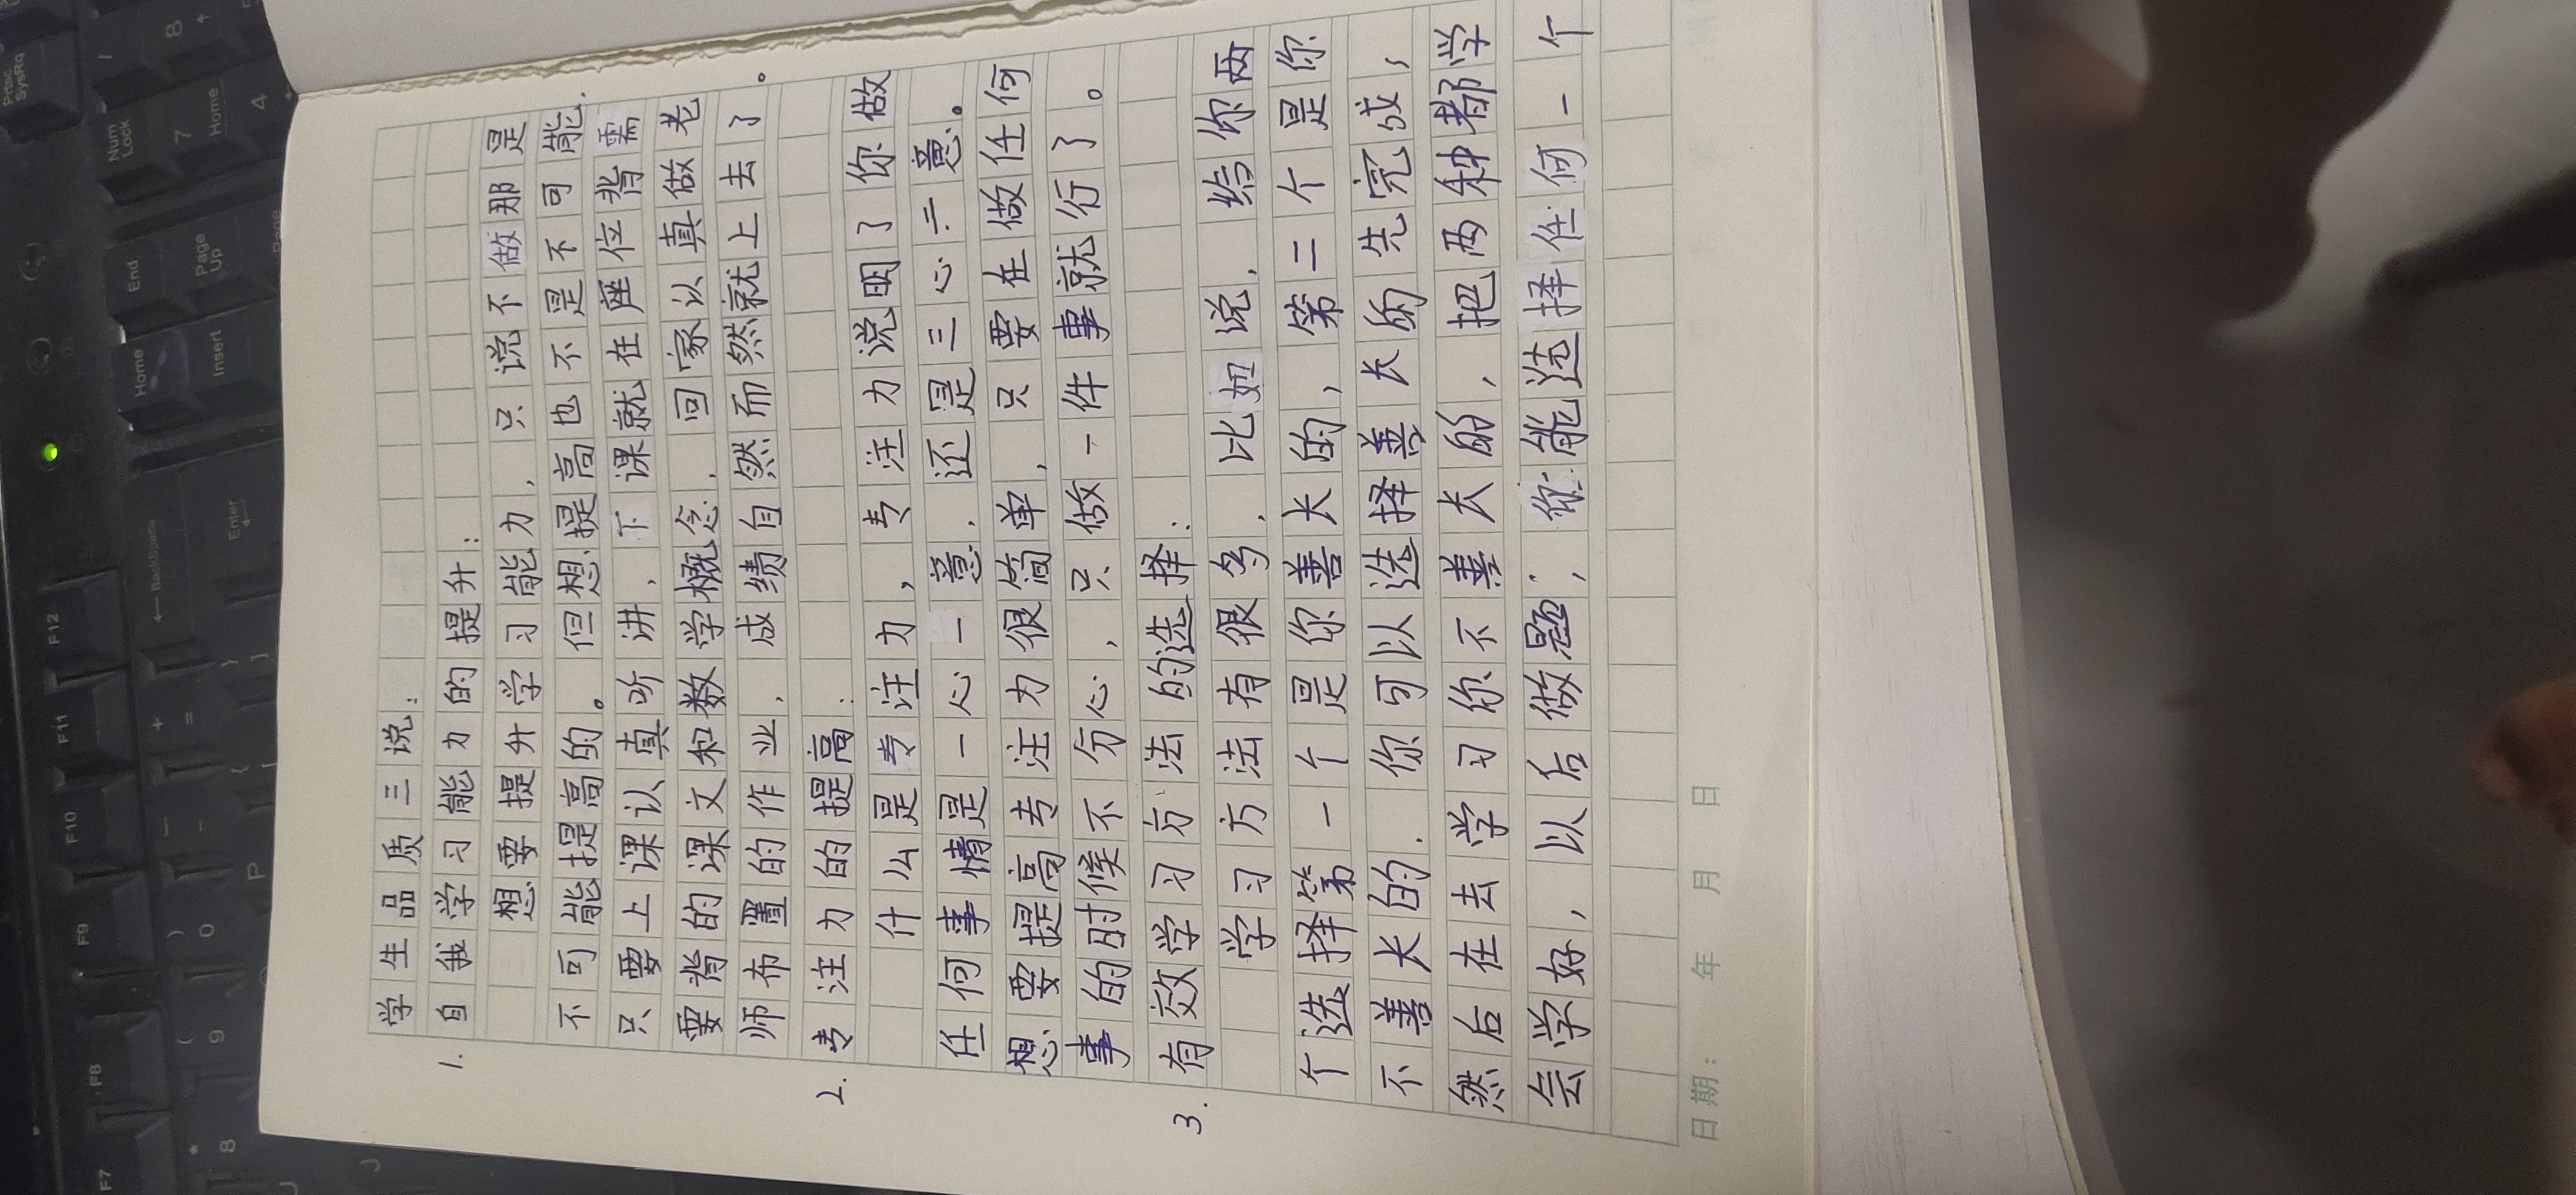 学生品质三说:
1. 自我学习能力的提升:
想要提升学习能力，只说不做那是
不可能提高的。但想提高也不是不可能.
只要上课认真听讲，下课就在座位背需
要背的课文和数学概念，回家以真做老
师布置的作业，成绩自然而然就上去了。
2. 专注力的提高:
什么是专注力，专注力说明了你做
任何事情是一心一意，还是三心二意。
想要提高专注力很简单，只要在做任何
事的时候不分心，只做一件事就行了。
3. 有效学习方法的选择:
学习方法有很多，比如说，给你两
个选择第一个是你善长的，第二个是你
不善长的.你可以选择善长的先完成，
然后在去学习你不善长的，把两种都学
会学好，以后做题，你能选择任何一个
日期: 年 月 日
Prtsc SysRq
Num Lock
7 Home
8
4
Home
End
Insert
Page Up
Page
BackSpace
Enter
F12
F11
F10
F9
F8
F7
+ =
{ [
} ]
P
) 0
( 9
* 8
J